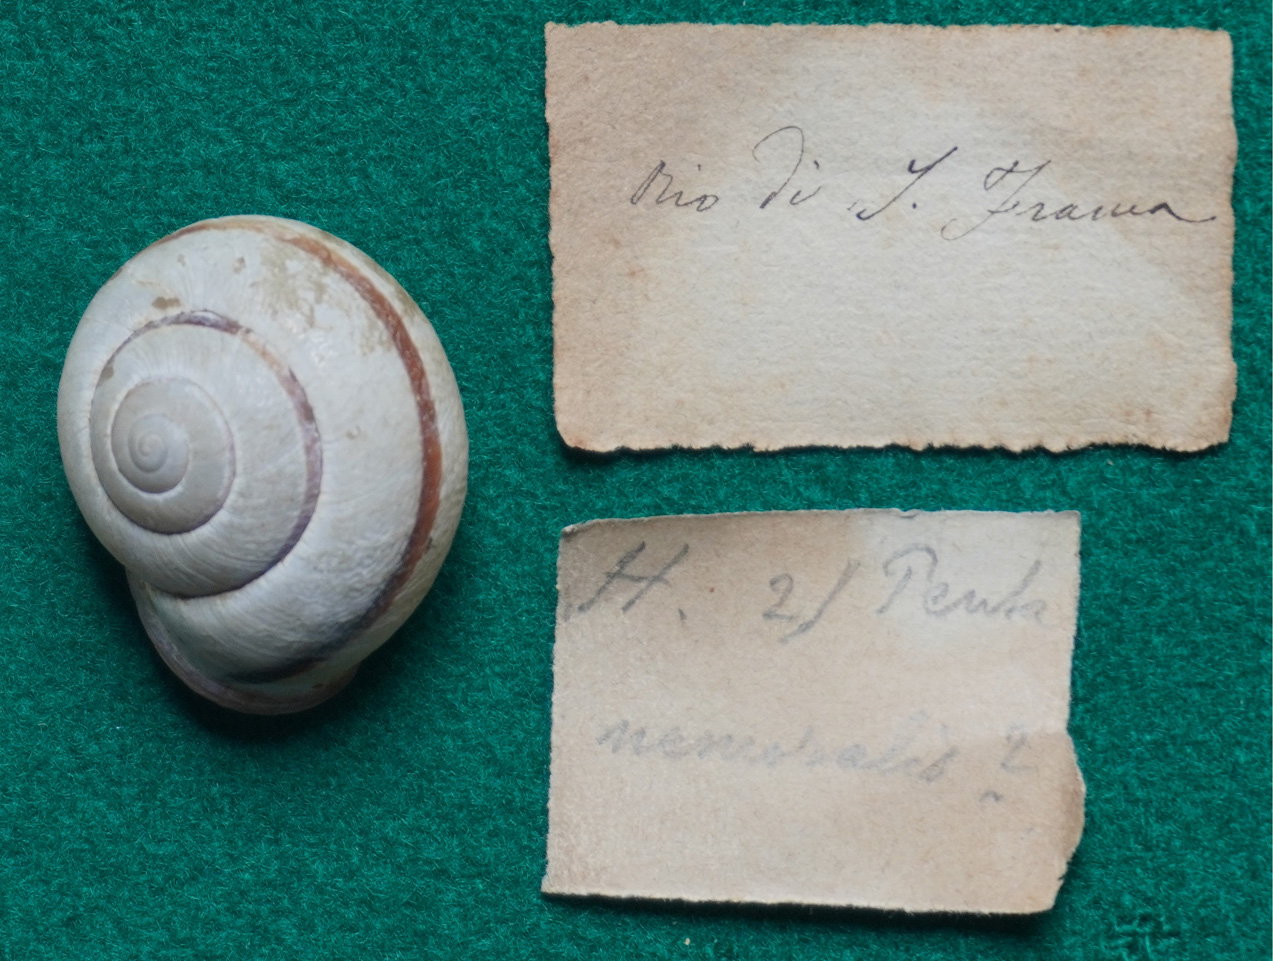 Rio di S. Franca
H. 21 Penta
nemoralis ?